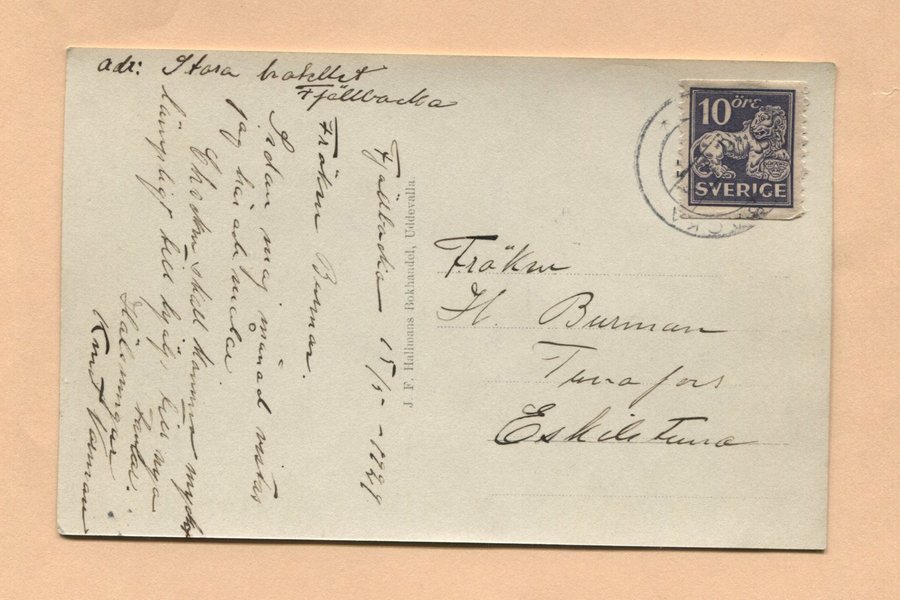 adr: Stora hotellet
Fjällbacka
Fjällbacka 15/5 - 1929
Fröken Burman.
Sedan maj månad vistas
jag här och målar.
skall komma mycket
lämpligt till hjälp för nya
tavlor.
Hälsningar
Knut Norman
J. F. Hallmans Bokhandel, Uddevalla
10 öre
SVERIGE
Fröken
H. Burman
Tunafors
Eskilstuna